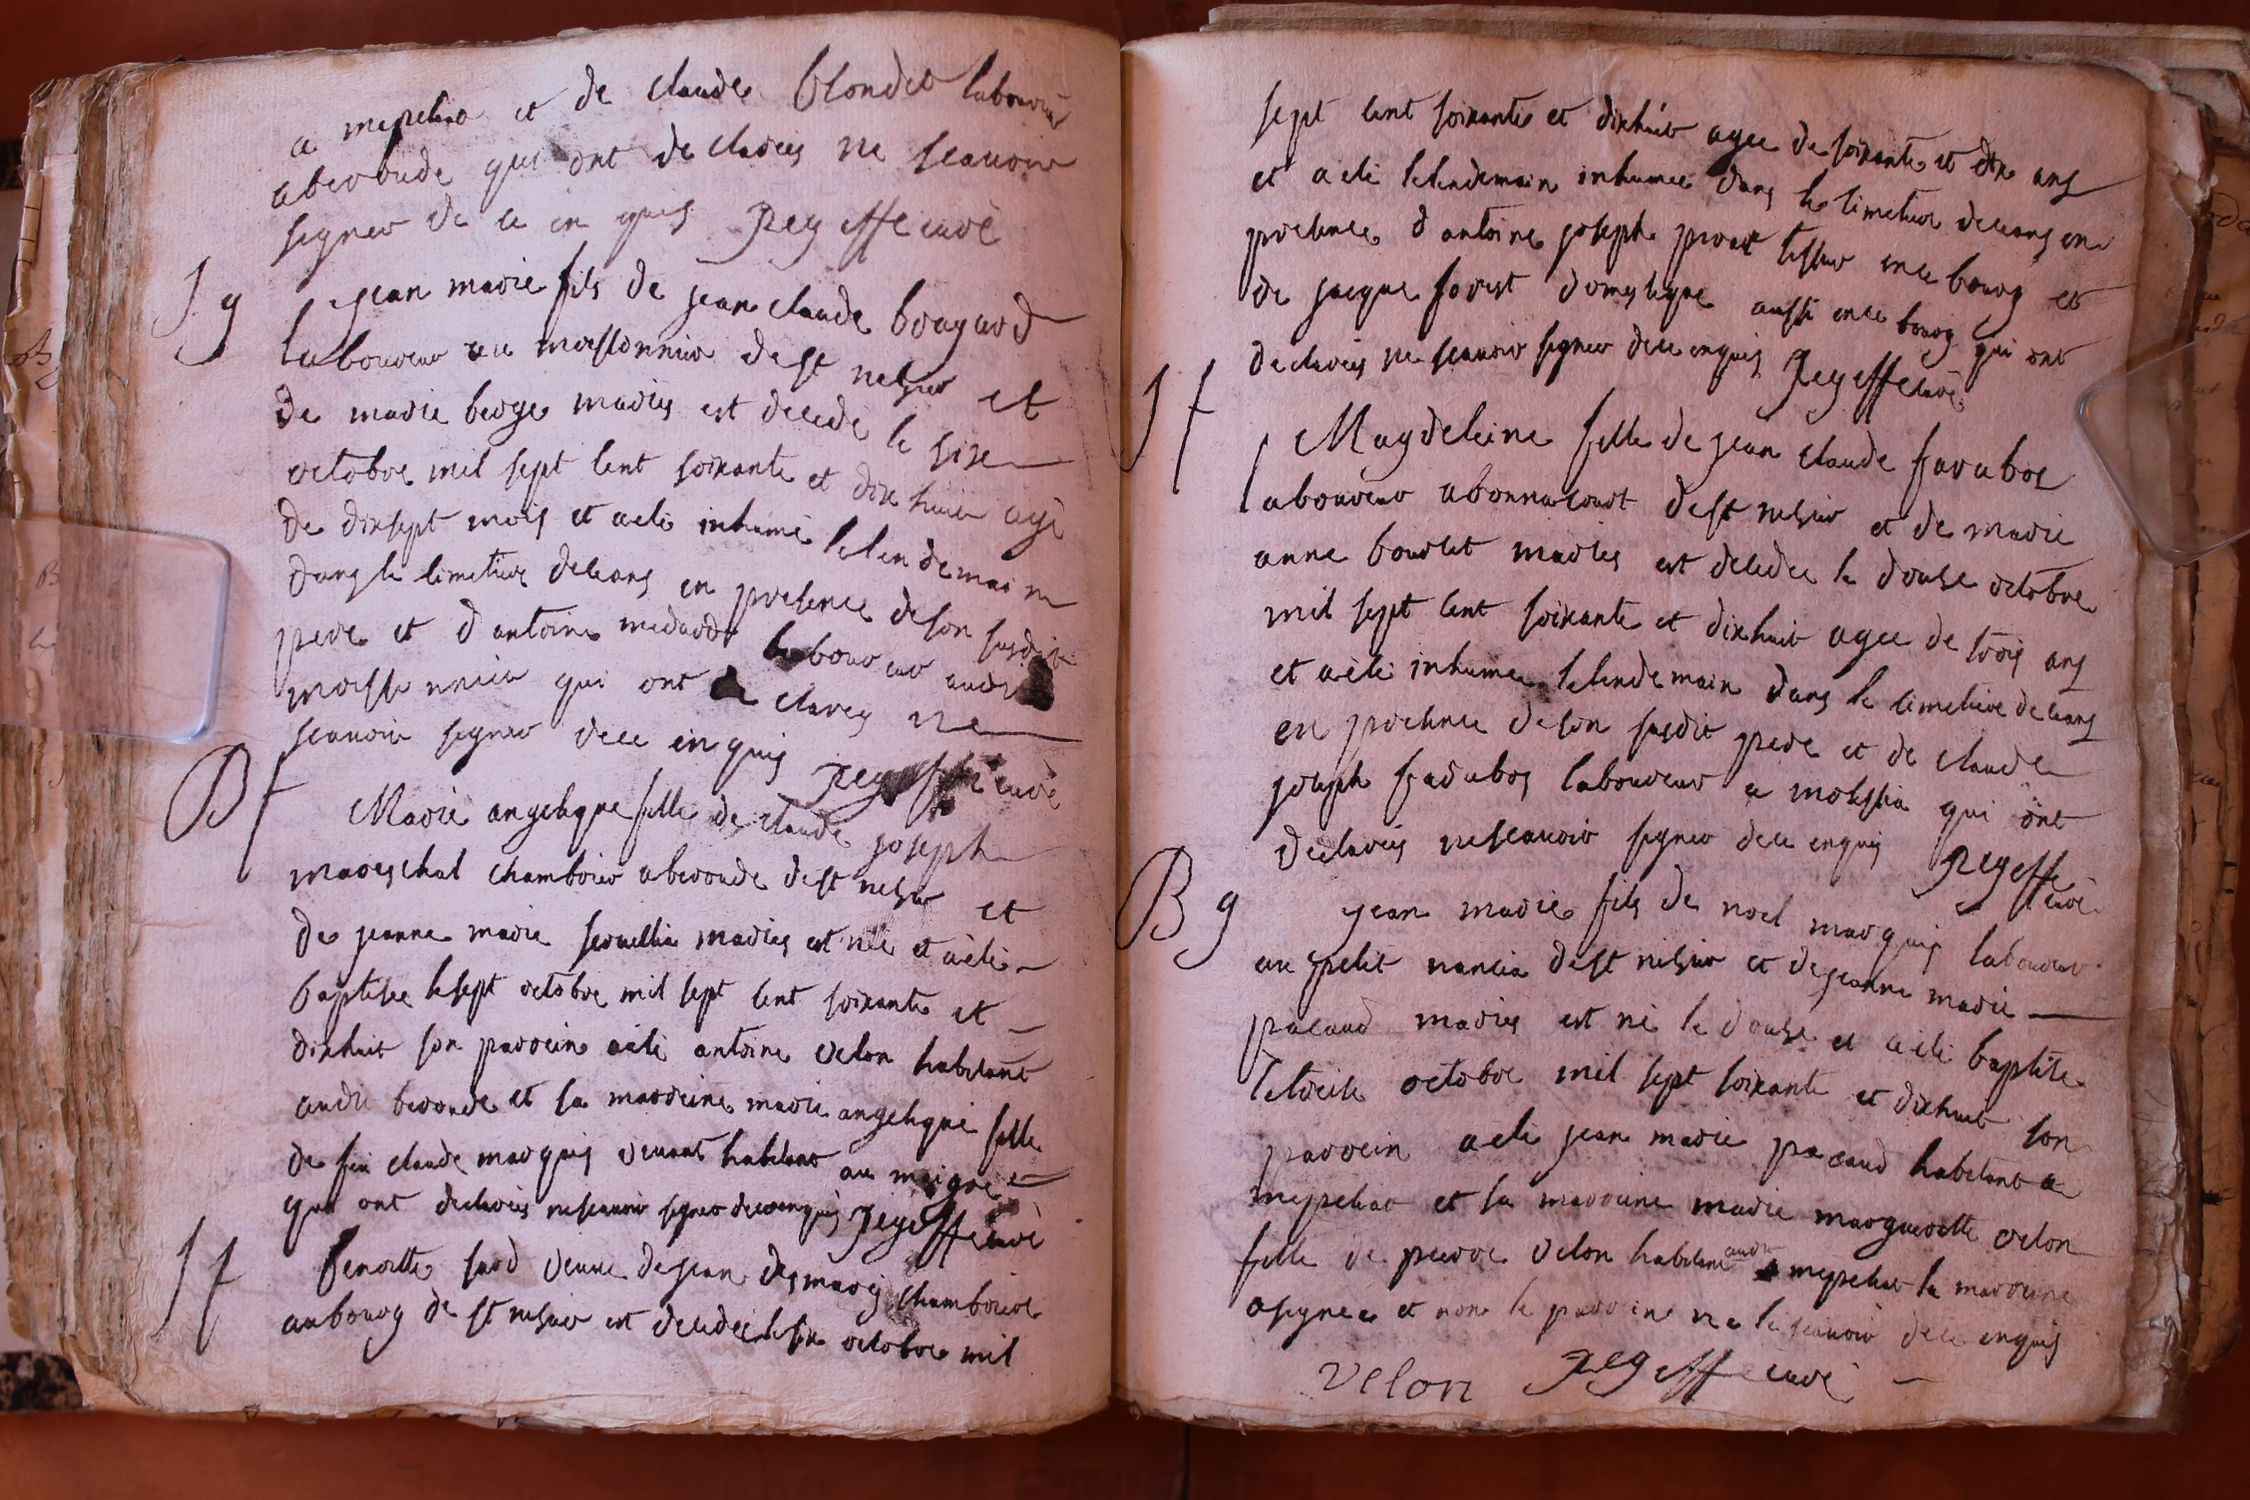 a mepelrao et de claude blondet laboureur
a beronde qui ont declarés ne scauoir
signer de ce en quis Regeffe curé
S g
jean marie fils de jean claude bouguod
laboureur au moissonnier de st nesier et
de marie berger mariés est decedé le size
octobre mil sept cent soixante et dix huit agé
de dixsept mois et aeté inhumé le lendemain
dans le cimetiere deceans en presence de son susdit
pere et d antoine medard laboureur audit
moissonnier qui ont declarés ne
scauoir signer dece enquis Regeffe curé
B f
Marie angelique fille de claude joseph
mareschal chambrier a beronde dest nesier et
de jeanne marie mariés est née et aété
baptisée le sept octobre mil sept cent soixante et
dixhuit son parrein aété antoine velon habitant
audit beronde et sa marreine marie angelique fille
de feu claude marquis viuant habitant au
qui ont declarés nescauoir signer dece enquis Regeffe curé
S f
benoitte veuue de jean desmaris chambriere
au bourg de st nesier est decedée le six octobre mil
sept cent soixante et dixhuit agée de soixante et dix ans
et aeté lelendemain inhumée dans le cimetiere deceans en
presence d antoine joseph tissier ence bourg et
de jacque forest domestique aussi ence bourg qui ont
declarés ne scauoir signer dece enquis Regeffe curé
S f
Magdeleine fille de jean claude farabos
laboureur a dest nesier et de marie
anne bourlet mariés est decedée le douse octobre
mil sept cent soixante et dixhuit agée de trois ans
et aeté inhumée lelendemain dans le cimetiere deceans
en presence deson susdit pere et de claude
joseph farabos laboureur a qui ont
declarés nescauoir signer dece enquis Regeffe curé
B g
jean marie fils de noel marquis laboureur
au petit nancia dest nesier et de jeanne marie
pacaud mariés est né le douse et aeté baptisé
letreise octobre mil sept soixante et dixhuit son
parrein aeté jean marie pacaud habitant a
mepelrao et sa marreine marie margueritte velon
fille de pierre velon habitant audit mepelrao la marreine
asignée et non le parrein ne le scauoir dece enquis
velon Regeffe curé